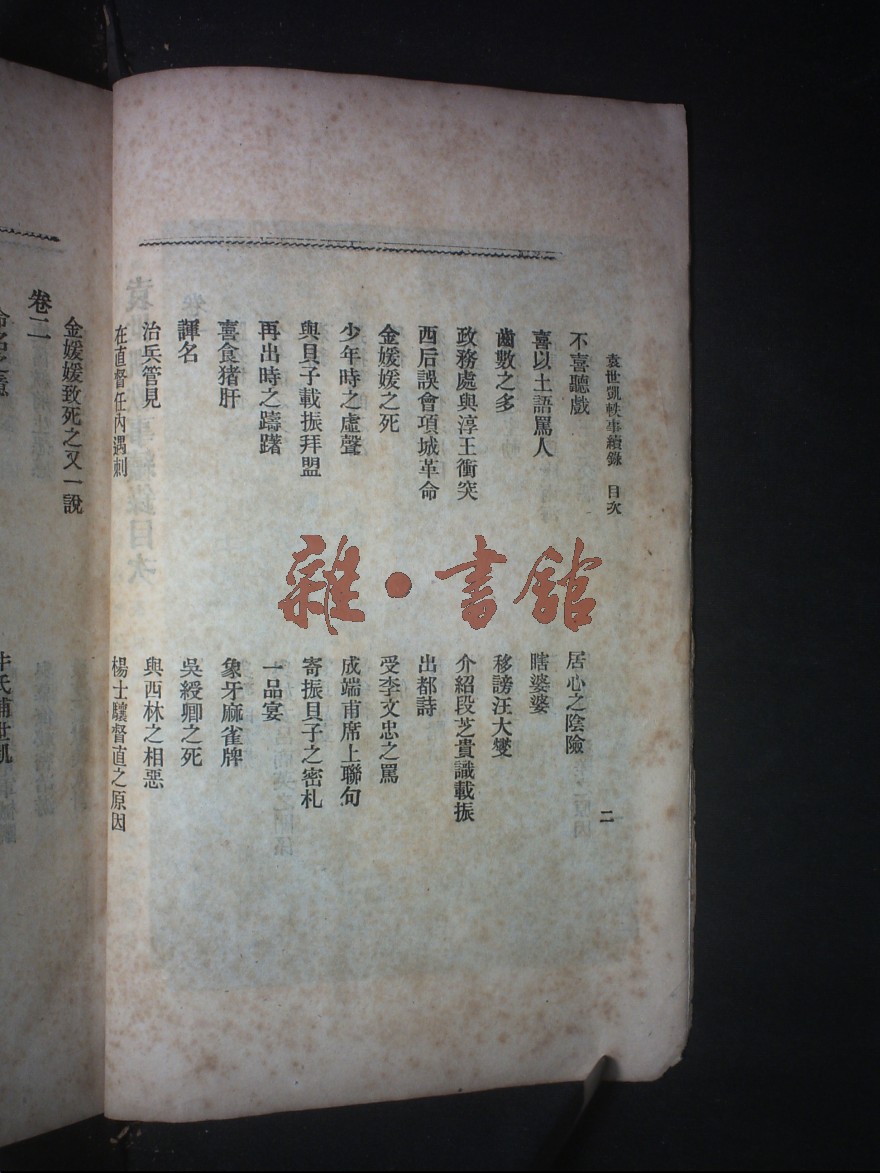 袁世凱軼事續錄　目次
二
不喜聽戲
居心之陰險
喜以土語罵人
瞎婆婆
齒數之多
移謗汪大燮
政務處與淳王衝突
介紹段芝貴識載振
西后誤會項城革命
出都詩
金媛媛之死
受李文忠之罵
少年時之虛聲
成端甫席上聯句
與貝子載振拜盟
寄振貝子之密札
再出時之躊躇
一品宴
喜食猪肝
象牙麻雀牌
諢名
吳綬卿之死
治兵管見
與西林之相惡
在直督任內遇刺
楊士驤督直之原因
金媛媛致死之又一說
卷二
雜·書館